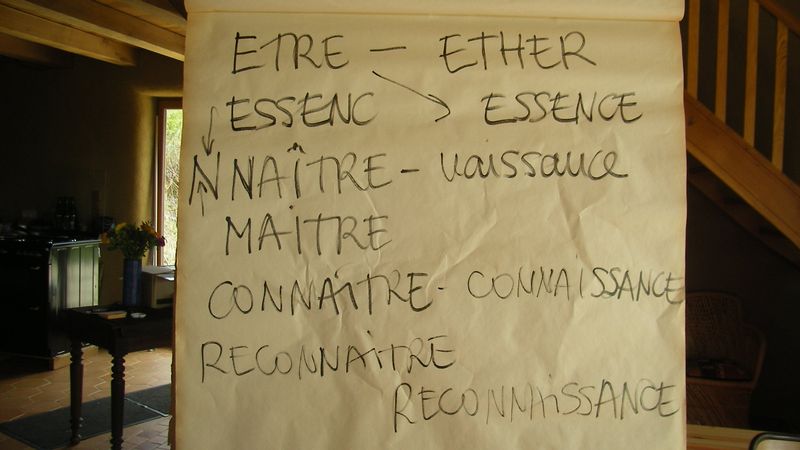 ETRE — ETHER
ESSENC ESSENCE
N NAÎTRE - naissance
MAITRE
CONNAÎTRE - CONNAISSANCE
RECONNAITRE
RECONNAiSSANCE